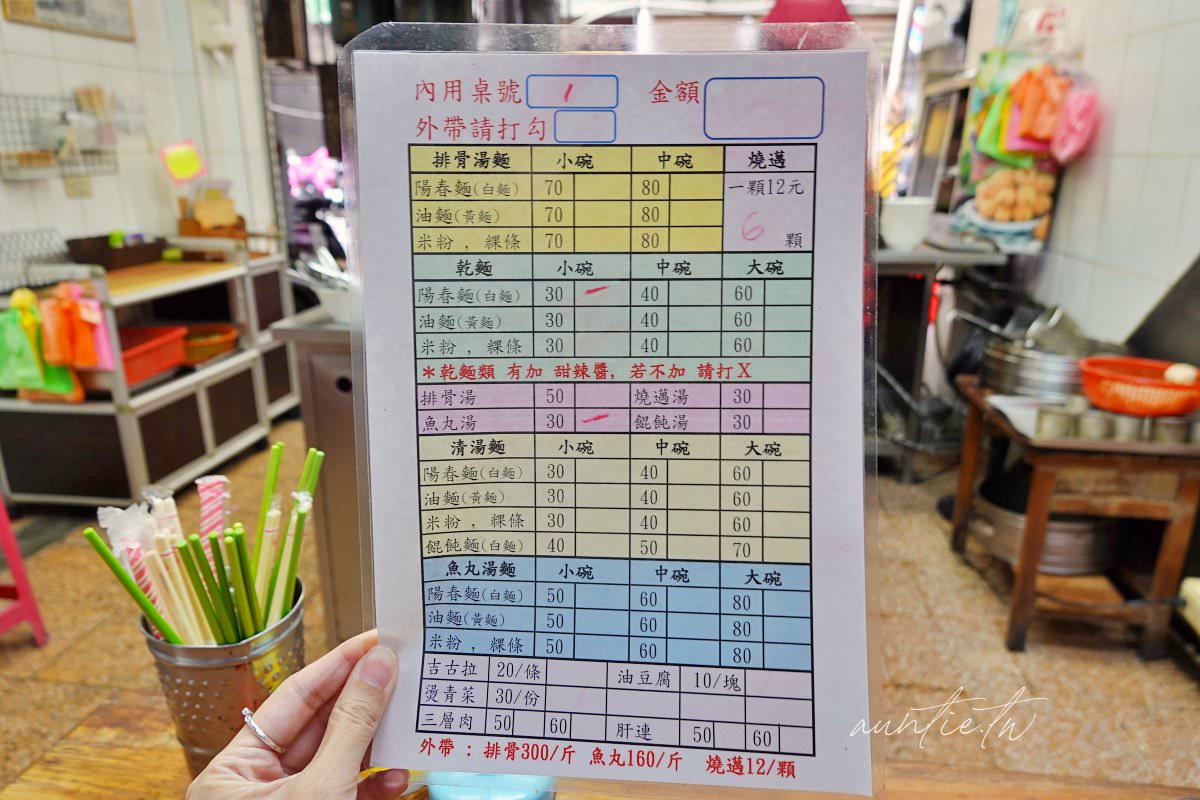 內用桌號 1 金額
外帶請打勾
排骨湯麵 小碗 中碗 燒邁
陽春麵(白麵) 70 80 一顆12元
油麵(黃麵) 70 80 6
米粉，粿條 70 80 顆
乾麵 小碗 中碗 大碗
陽春麵(白麵) 30 40 60
油麵(黃麵) 30 40 60
米粉，粿條 30 40 60
*乾麵類 有加 甜辣醬，若不加 請打X
排骨湯 50 燒邁湯 30
魚丸湯 30 餛飩湯 30
清湯麵 小碗 中碗 大碗
陽春麵(白麵) 30 40 60
油麵(黃麵) 30 40 60
米粉，粿條 30 40 60
餛飩麵(白麵) 40 50 70
魚丸湯麵 小碗 中碗 大碗
陽春麵(白麵) 50 60 80
油麵(黃麵) 50 60 80
米粉，粿條 50 60 80
吉古拉 20/條 油豆腐 10/塊
燙青菜 30/份
三層肉 50 60 肝連 50 60
外帶：排骨300/斤 魚丸160/斤 燒邁12/顆
auntie.tw